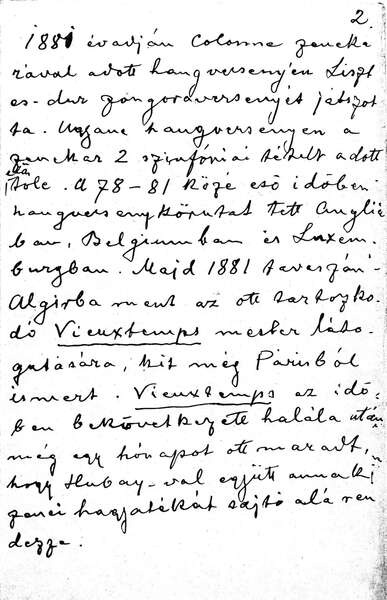 2.
1881 évadján Colonne zeneka
rával adott hangversenyén Liszt
es-dur zongoraversenyét játszot
ta. Ugyane hangversenyen a
zenekar 2 szinfóniai tételt adott
elő
tőle. A 78-81 közé eső időben
hangversenykörutat tett Angliá
ban, Belgiumban és Luxem-
burgban. Majd 1881 tavaszán
Algirba ment az ott tartozko-
dó Vieuxtemps mester láto-
gatására, kit még Párisból
ismert. Vieuxtemps az idő-
ben bekövetkezett halála után
még egy hónapot ott maradt,
hogy Hubay-val együtt annak
zenei hagyatékát sajtó alá ren
dezze.